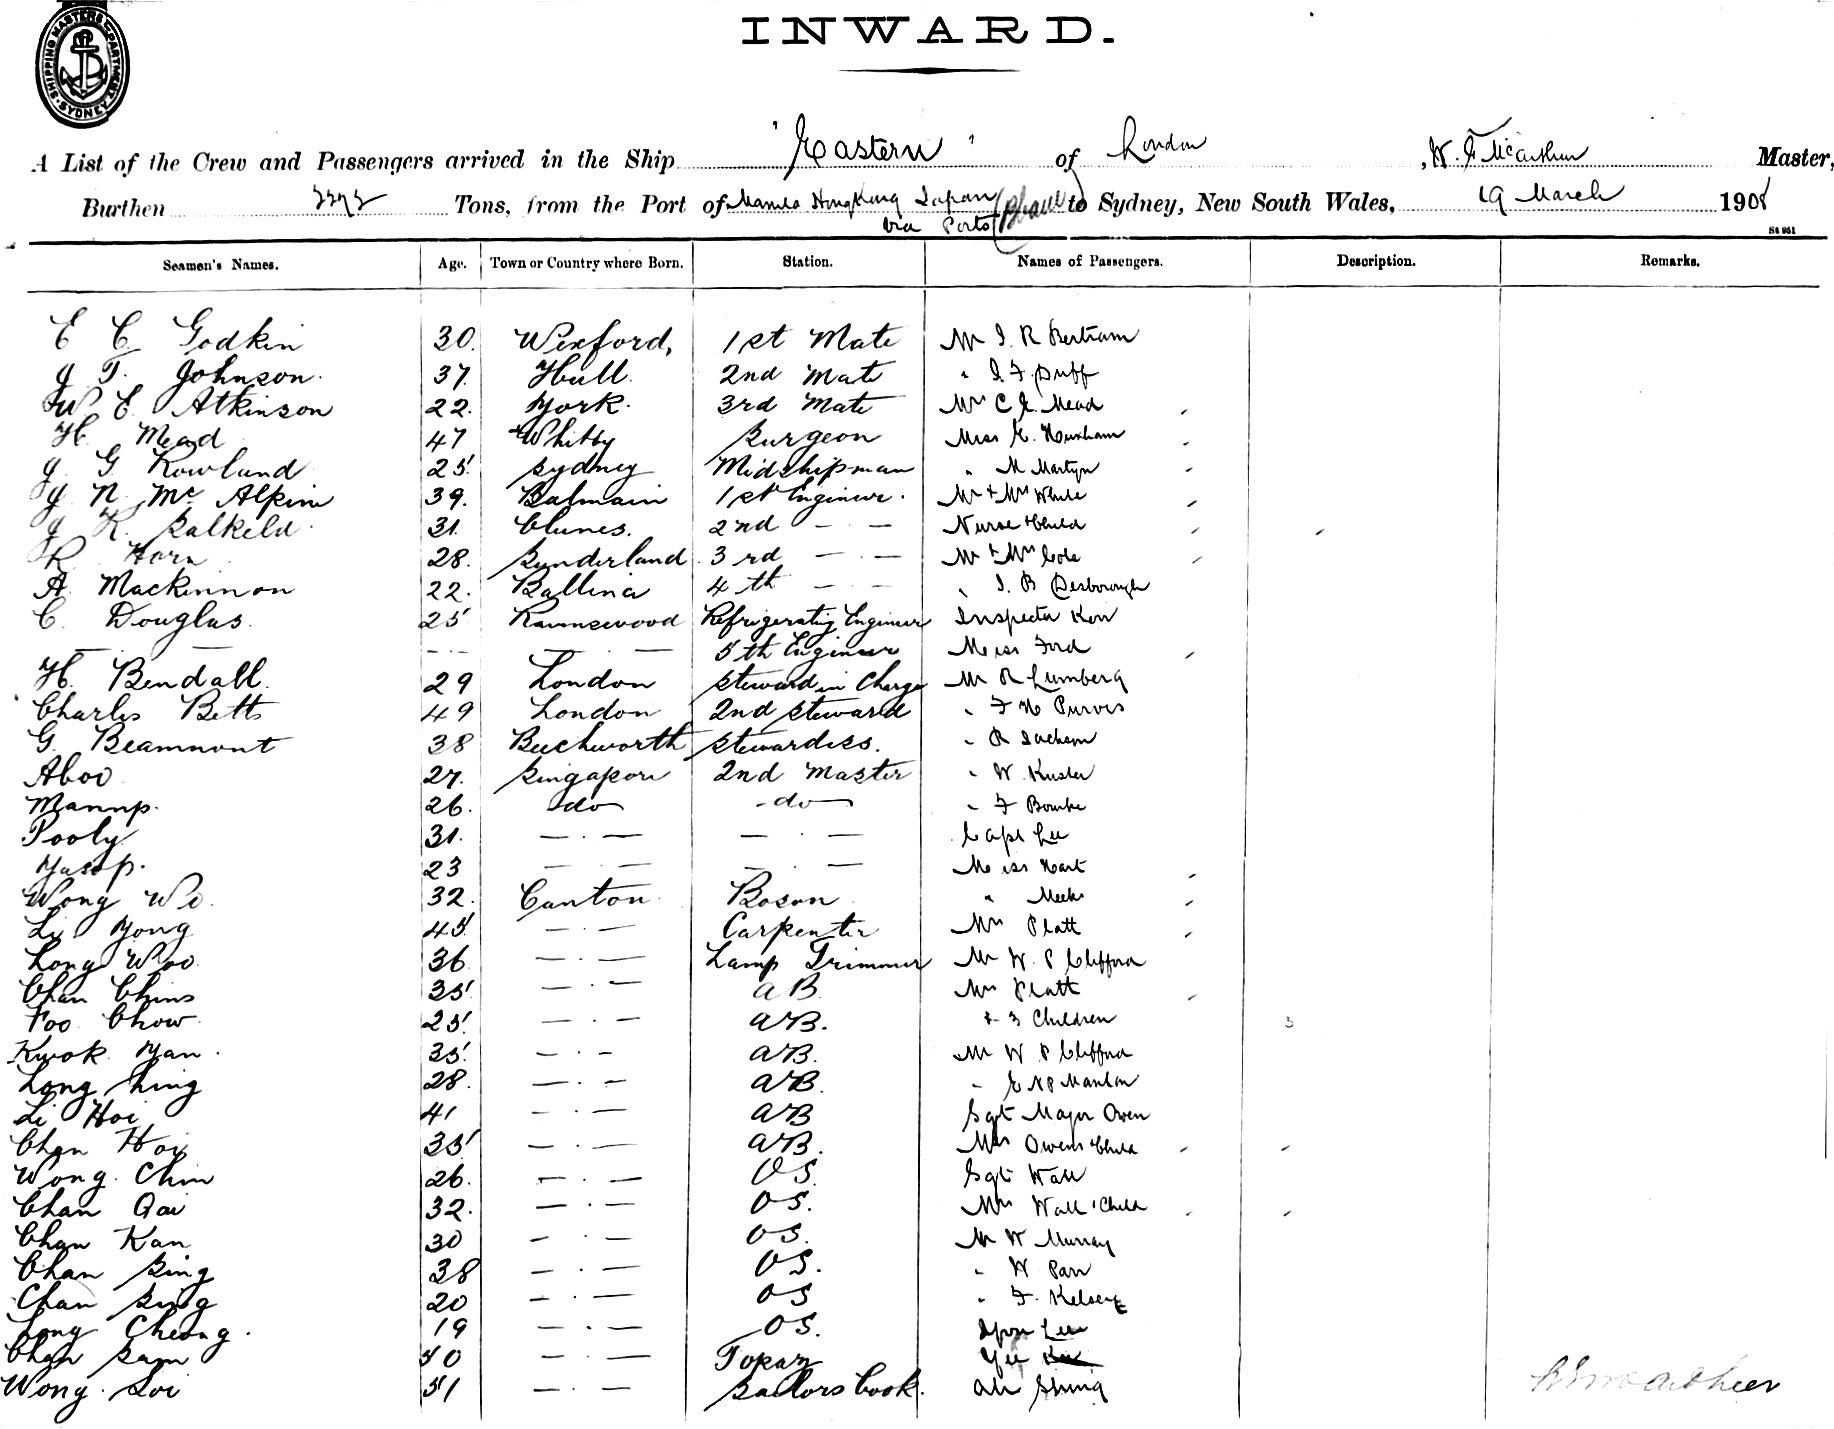 INWARD.
SHIPPING MASTERS DEPARTMENT SYDNEY
A List of the Crew and Passengers arrived in the Ship "Eastern" of London, W. F. McArthur Master,
Burthen Tons, from the Port of Manila Hongkong Japan to Sydney, New South Wales, 19 March 1908
via Ports
St 951
Seamen's Names. Age. Town or Country where Born. Station. Names of Passengers. Description. Remarks.
E C Godkin 30. Wexford, 1st Mate Mr I. R Bertram
J T. Johnson. 37. Hull. 2nd Mate " I. F. Duff
W E. Atkinson 22. York. 3rd Mate Mrs C E. Mead
H. Mead 47 Whitby Surgeon Miss E. Huxham
J. G. Rowland 25. Sydney Midshipman " M Martyn
J N. Mc Alpine 39. Balmain 1st Engineer. Mr & Mrs White
J K. Salkeld. 31. Clunes. 2nd — . — Nurse & Child
R Horn 28. Sunderland 3 rd — . — Mr & Mrs Cole
A. Mackinnon 22. Ballina 4 th — . — " I. B Desborough
C. Douglas. 25 Refrigerating Engineer Inspector
— . — — . — — . — 5th Engineer Miss Ford
H. Bendall. 29 London Steward in Charge Mr R Lumberg
Charles Betts 49 London 2nd Steward " F H Purvis
G. Beamnont 38 Beechworth Stewardess. " R Jackson
Aboo 27. Singapore 2nd Master " W. Kuster
Mannp. 26. do - do - " F Bourke
Pooly 31. — . — — . — Capt Lee
Yusop. 23 — . — — . — Miss Hart
Wong We. 32. Canton. Bosun " Meeks
Li Yong 45. — . — Carpenter Mrs Platt
Long Woo. 36 — . — Lamp Trimmer Mr W. P Clifford
Chan Chins 35. — . — AB. Mrs Platt
Foo Chow. 25. — . — AB. & 3 Children 3
Kwok Yan. 35. — . — AB. Mr W P Clifford
Long Sing 28. — . — AB. "
Li Hoi 41 — . — AB Sgt Major Owen
Chan Hoi 35 — . — AB. Mrs Owen & Child
Wong. Chin 26. — . — OS. Sgt Wall
Chan Qai 32. — . — OS. Mrs Wall & Child
Chan Kan 30 — . — OS. Mr W Murray
Chan Sing 38 — . — OS. " W Parr
Chan Sing 20 — . — OS " F. Kelsey
Long Cheong. 19 — . — OS. Lee
Chan Sam 50 — . — Topaz Yee
Wong. Soi 51 — . — Sailors Cook. Ah Shing